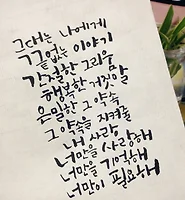 그대는 나에게
끝없는 이야기
간절한 그리움
행복한 거짓말
은밀한 그 약속
그 약속을 지켜줄
내 사랑
너만을 사랑해
너만을 기억해
너만이 필요해